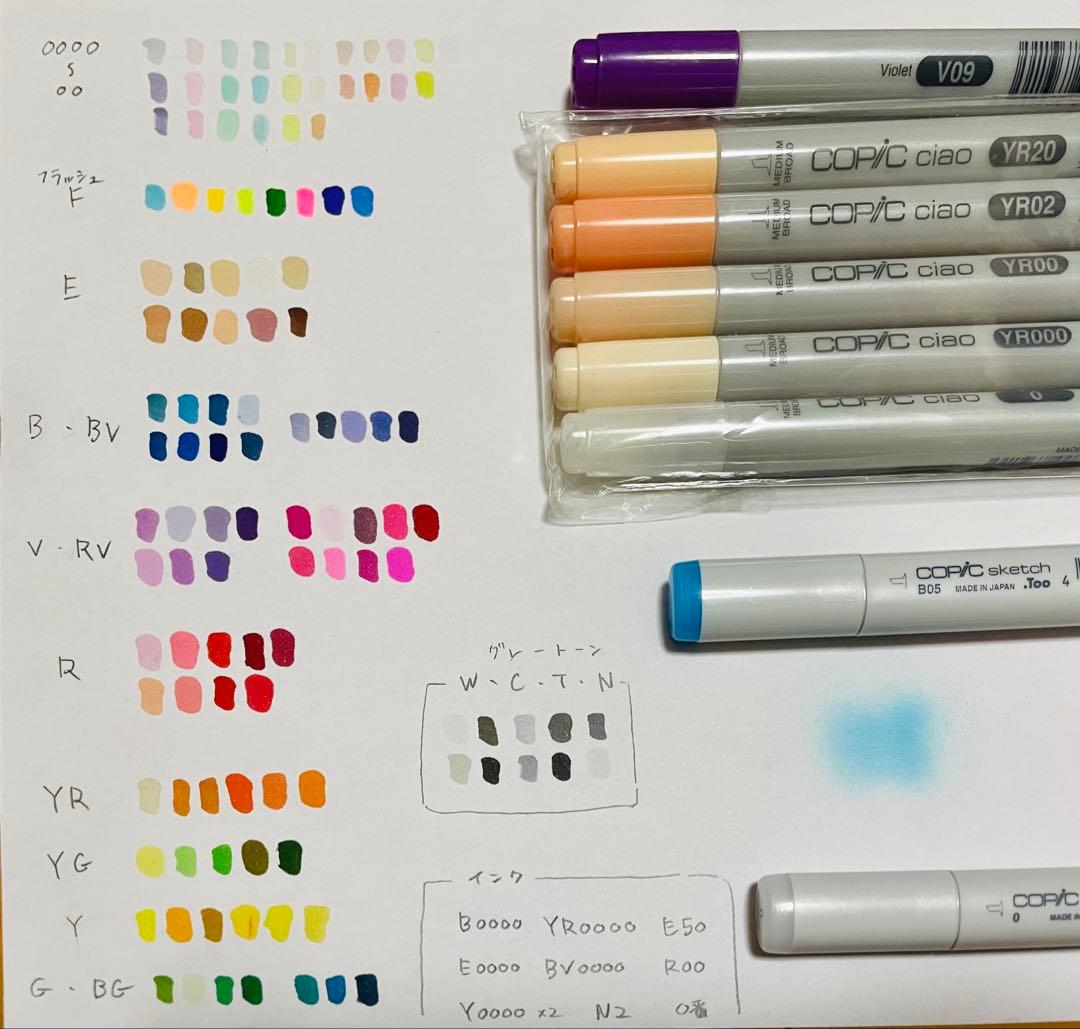 0000
S
00
フラッシュ
F
E
B・BV
V・RV
R
YR
YG
Y
G・BG
グレートーン
W・C・T・N
インク
B0000 YR0000 E50
E0000 BV0000 R00
Y0000 x2 N2 0番
Violet V09
1 MEDIUM BROAD COPIC ciao YR20
1 MEDIUM BROAD COPIC ciao YR02
1 MEDIUM BROAD COPIC ciao YR00
1 MEDIUM BROAD COPIC ciao YR000
COPIC ciao 0
1 COPIC sketch
B05 MADE IN JAPAN .Too 4
1 COPIC
0 MADE IN